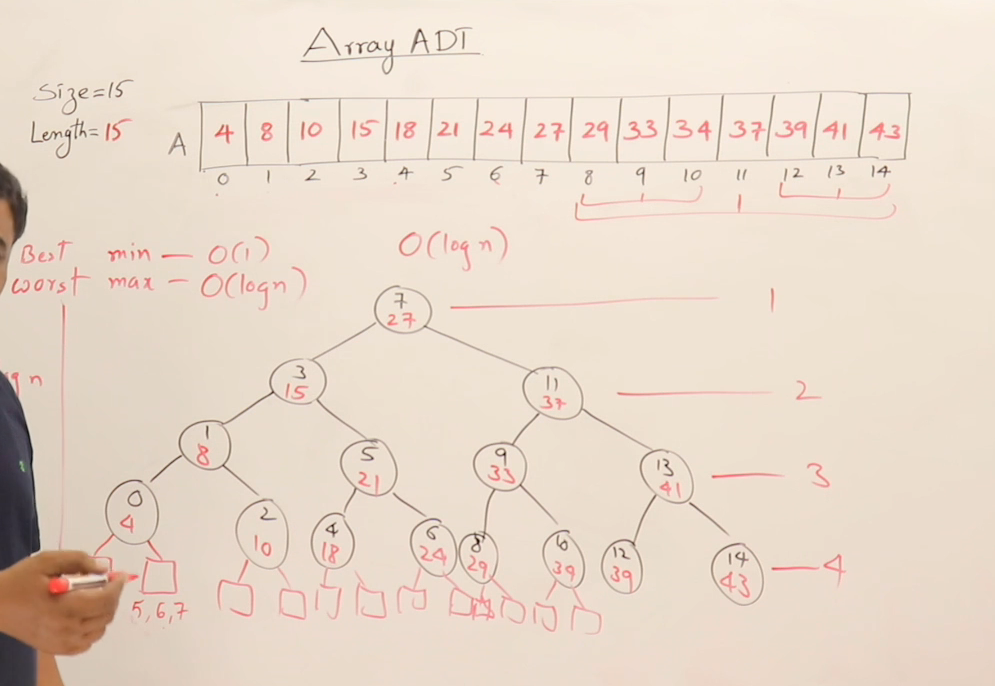 Array ADT
Size=15
Length=15
A 4 8 10 15 18 21 24 27 29 33 34 37 39 41 43
0 1 2 3 4 5 6 7 8 9 10 11 12 13 14
Best min — O(1)
O(log n)
worst max — O(logn)
7
27
1
3
15
11
37
2
1
8
5
21
9
33
13
41
3
0
4
2
10
4
18
6
24
8
29
39
12
39
14
43
4
5,6,7